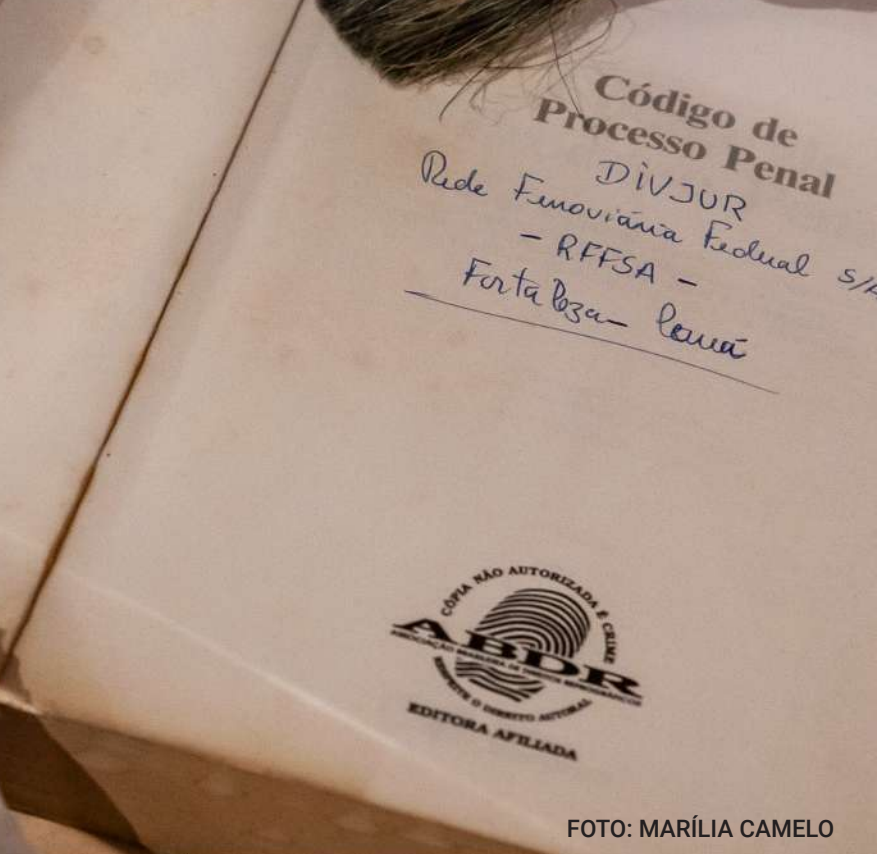 Código de
Processo Penal
DIVJUR
Rede Ferroviária Federal S/A
- RFFSA -
Fortaleza - Ceará
CÓPIA NÃO AUTORIZADA É CRIME
ABDR
ASSOCIAÇÃO BRASILEIRA DE DIREITOS REPROGRÁFICOS
RESPEITE O DIREITO AUTORAL
EDITORA AFILIADA
FOTO: MARÍLIA CAMELO